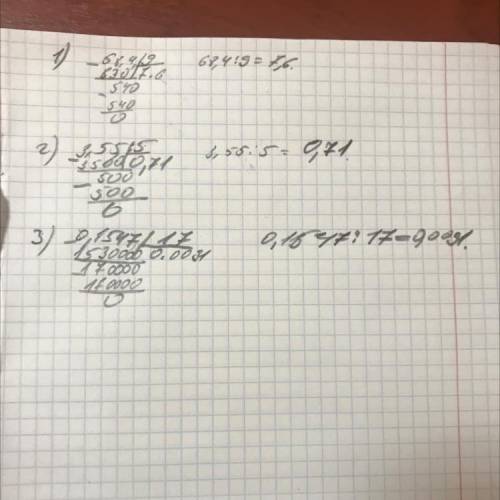 1) 68,4 | 9 68,4:9 = 7,6.
630 | 7.6
540
540
0
2) 3,55 | 5 3,55:5 = 0,71.
3500 | 0,71
500
500
0
3) 0,1547 | 17 0,1547:17 = 0,0091.
1530000 | 0.0091
170000
170000
0